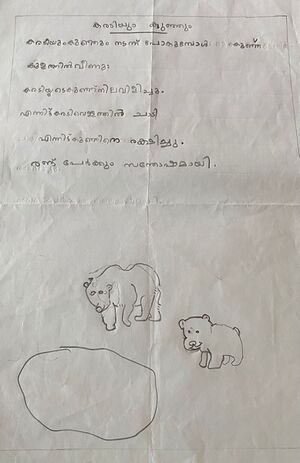 കരടിയും കുഞ്ഞും
കരടിയുംകുഞ്ഞും നടന്ന് പോകുമ്പോൾ കുഞ്ഞ്
കുളത്തിൽവീണു.
കരടിയുടെകുഞ്ഞ്നിലവിളിച്ചു.
എന്നിട്ട്കരടിവെള്ളത്തിൽ ചാടി
എന്നിട്ട്കുഞ്ഞിനെ രക്ഷിച്ചു.
രണ്ട് പേർക്കും സന്തോഷമായി.